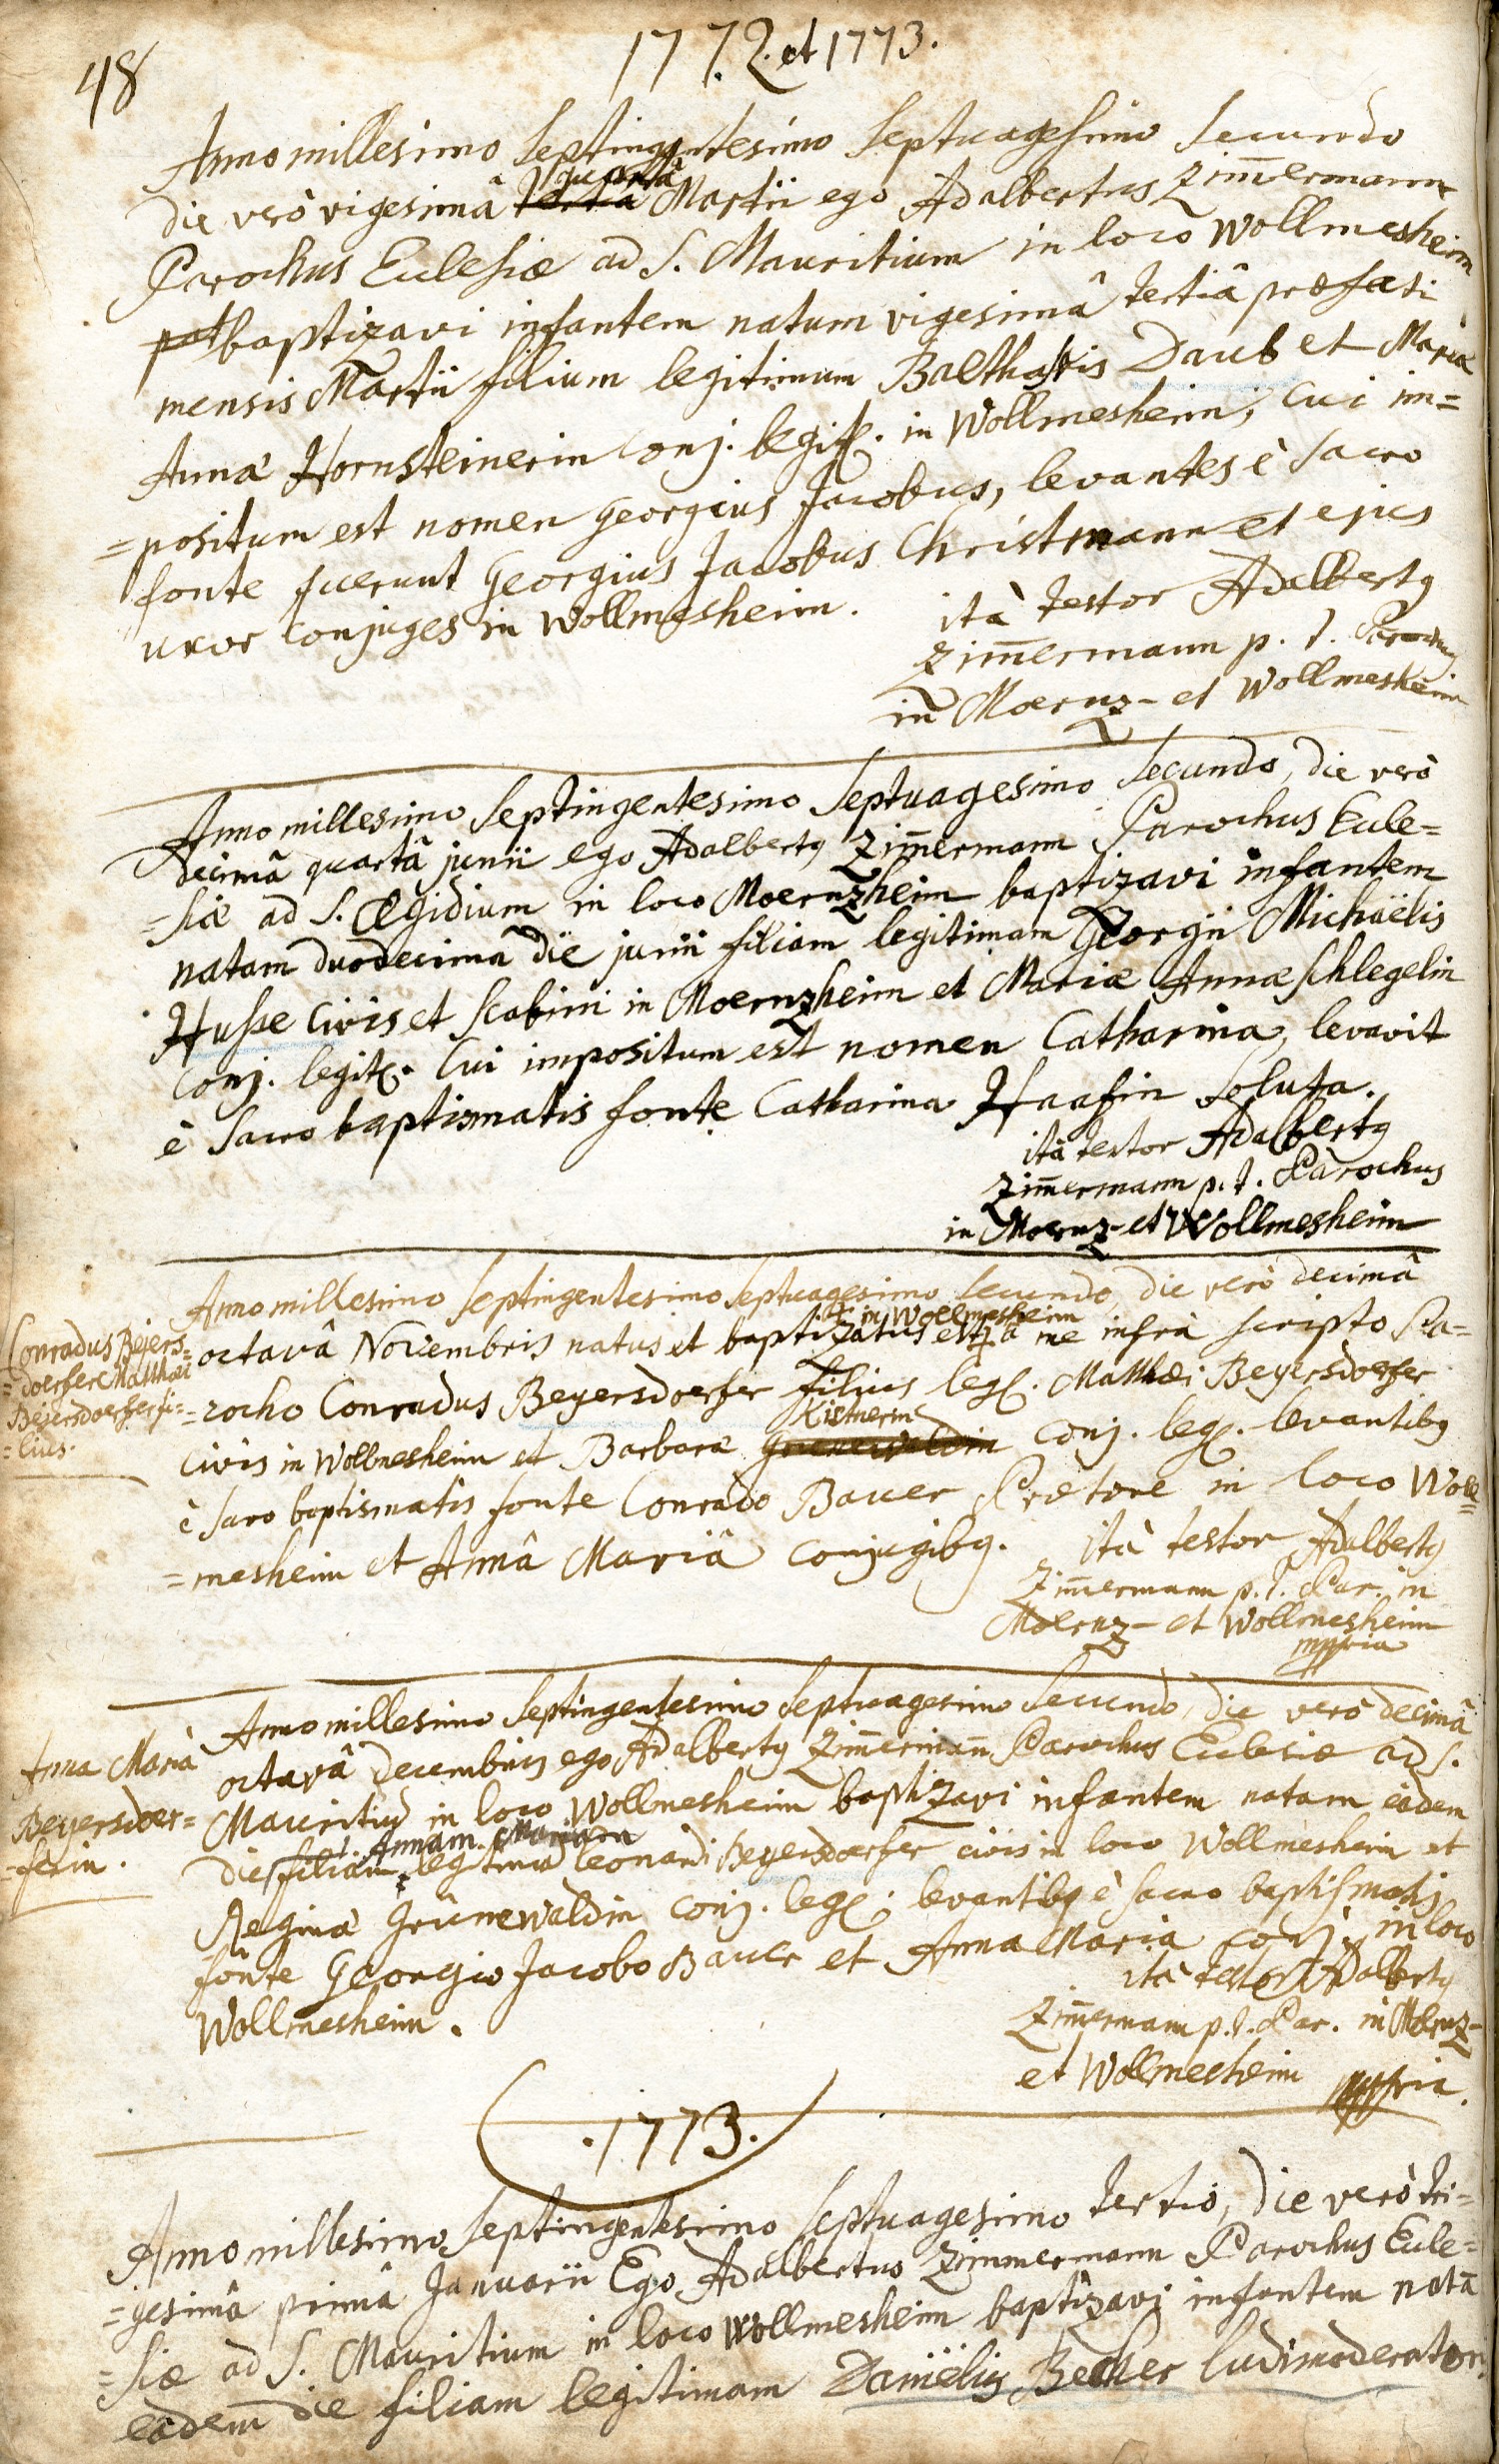 48
1772. et 1773.
Anno millesimo Septingentesimo Septuagesimo Secundo
die verò vigesimâ tertiâ quartâ Martii ego Adalbertus Zim̄ermann
Parochus Eclesiæ ad S. Mauritium in loco Wollmesheim
pat baptizavi infantem natum vigesimâ tertiâ præfati
mensis Martii filium legitimum Balthasaris Daub et Mariæ
Annæ Hornsteinerin conj. legit. in Wollmesheim, cui im=
=positum est nomen Georgius Jacobus, levantes è sacro
fonte fuerunt Georgius Jacobus Christmann et ejus
uxor conjuges in Wollmesheim.
ità testor Adalbertg
Zim̄ermann p. t. Parochus
in Moernz- et Wollmesheim
Anno millesimo Septingentesimo Septuagesimo Secundo, die verò
decimâ quartâ junii ego Adalbertg Zim̄ermann Parochus Ecle=
=siæ ad S. Ægidium in loco Moernzheim baptizavi infantem
natam duodecima die junii filiam legitimam Georgii Michaëlis
Husse civis et scabini in Moernzheim et Mariæ Annæ Schlegelin
conj. legit. cui impositum est nomen Catharina, levavit
è sacro baptismatis fonte Catharina Haasin soluta.
ità testor Adalbertg
Zim̄ermann p. t. Parochus
in Moernz- et Wollmesheim
Conradus Bejers=
=doerfer Matthæi
Bejersdoerfer fi=
=lius.
Anno millesimo Septingentesimo Septuagesimo Secundo, die verò decimâ
octavâ Novembris natus et baptizatus est in Wollmesheim à me infrà scripto Pa=
=rocho Conradus Beyersdoerfer filius leg. Matthæi Beyersdoerfer
civis in Wollmesheim et Barbaræ Grünewaldin Kistnerin conj. leg. levantibg
è sacro baptismatis fonte Conrado Bauer Prætore in loco Woll=
=mesheim et Annâ Mariâ conjugibg.
ità testor Adalbertg
Zim̄ermann p. t. Par. in
Moernz- et Wollmesheim
mppria
Anna Maria
Beyersdoer=
=ferin.
Anno millesimo Septingentesimo Septuagesimo Secundo, die verò decimâ
octavâ decembris ego Adalbertg Zim̄ermann Parochus Eclesiæ ad S.
Mauritiū in loco Wollmesheim baptizavi infantem natam eâdem
die filiam Annam Mariam legitimā Leonardi Beyersdoerfer civis in loco Wollmesheim et
Reginæ Grünewaldin conj. leg; levantibg è sacro baptismatis
fonte Georgio Jacobo Bauer et Anna Maria conj. in loco
Wollmesheim.
ità testor Adalbertg
Zim̄ermann p. t. Par. in Moernz-
et Wollmesheim mppria.
.1773.
Anno millesimo Septingentesimo Septuagesimo tertio, die verò tri=
=gesimâ primâ Januarii Ego Adalbertus Zimmermann Parochus Ecle=
=siæ ad S. Mauritium in loco Wollmesheim baptizavi infantem natā
eâdem die filiam legitimam Daniëlis Becker ludimoderatoris